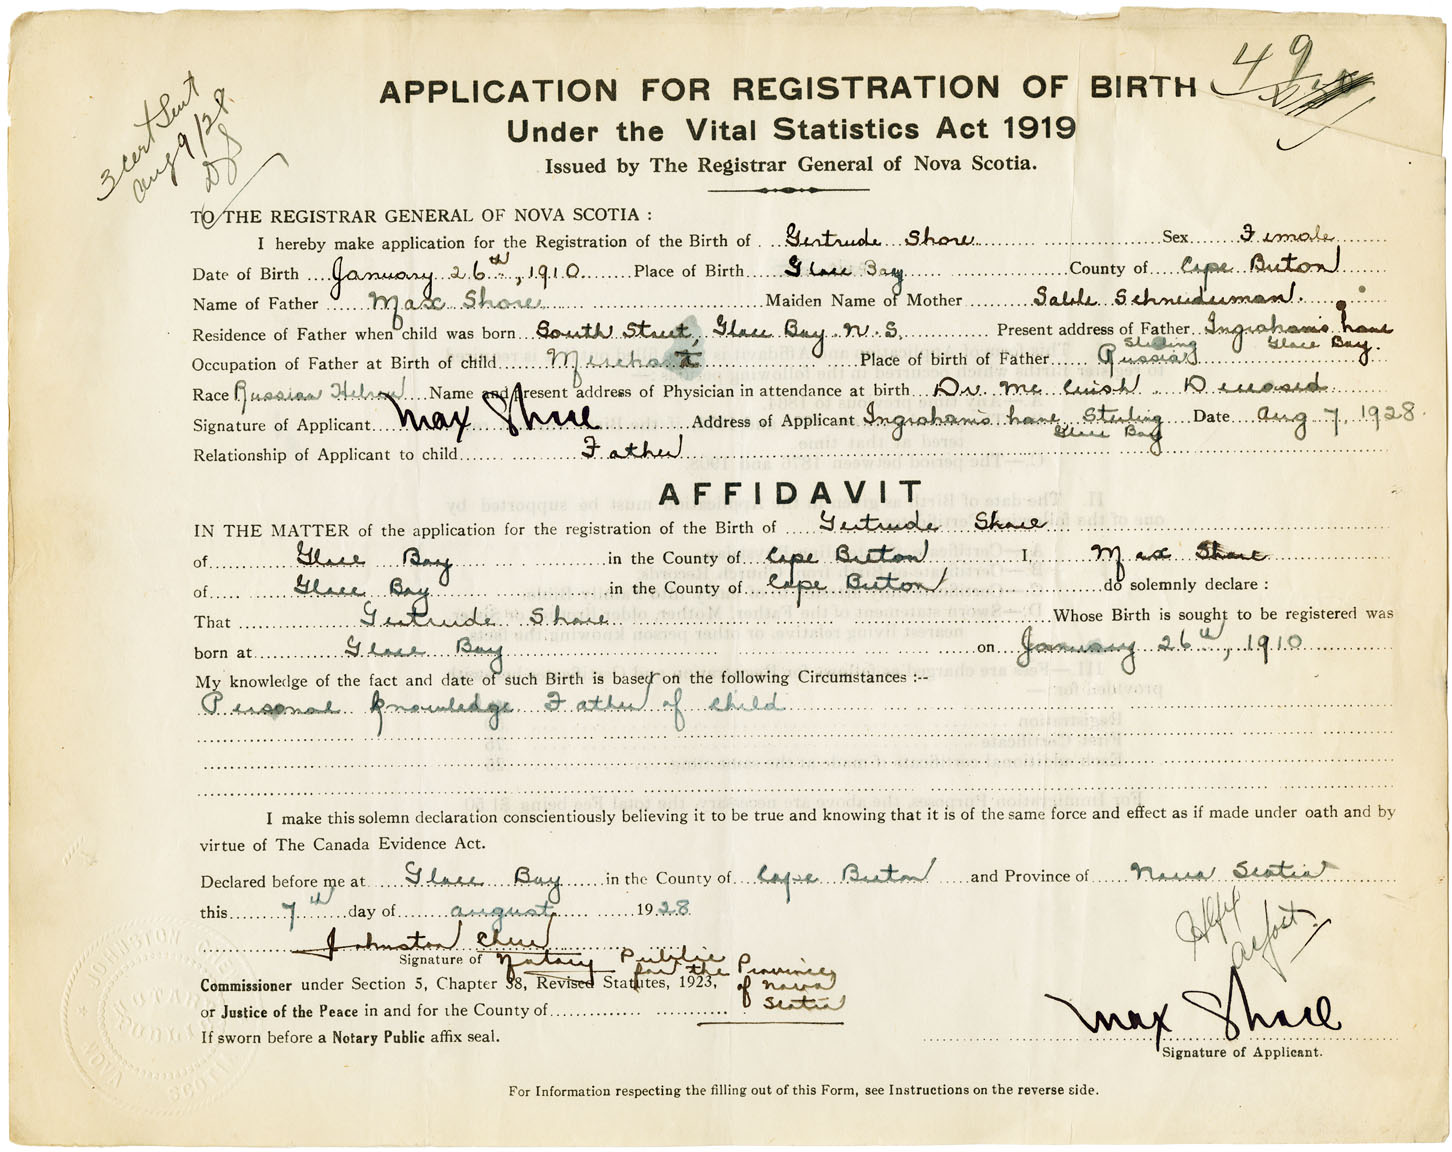 49
3 cert sent
Aug 9/28.
APPLICATION FOR REGISTRATION OF BIRTH
Under the Vital Statistics Act 1919
Issued by The Registrar General of Nova Scotia.
TO THE REGISTRAR GENERAL OF NOVA SCOTIA :
I hereby make application for the Registration of the Birth of Gertrude Shore Sex Female
Date of Birth January 26th, 1910 Place of Birth Glace Bay County of Cape Breton
Name of Father Max Shore Maiden Name of Mother Sable Schneiderman.
Residence of Father when child was born South Street, Glace Bay N.S. Present address of Father Ingraham's Lane
Sterling Glace Bay.
Occupation of Father at Birth of child Merchant Place of birth of Father Russia
Race Russian Hebrew Name and present address of Physician in attendance at birth Dr. Mc Cuish Deceased
Signature of Applicant Max Shore Address of Applicant Ingraham's Lane Sterling Date Aug 7, 1928
Glace Bay
Relationship of Applicant to child Father
AFFIDAVIT
IN THE MATTER of the application for the registration of the Birth of Gertrude Shore
of Glace Bay in the County of Cape Breton I, Max Shore
of Glace Bay in the County of Cape Breton do solemnly declare :
That Gertrude Shore Whose Birth is sought to be registered was
born at Glace Bay on January 26th, 1910
My knowledge of the fact and date of such Birth is based on the following Circumstances :--
Personal knowledge Father of child
I make this solemn declaration conscientiously believing it to be true and knowing that it is of the same force and effect as if made under oath and by
virtue of The Canada Evidence Act.
Declared before me at Glace Bay in the County of Cape Breton and Province of Nova Scotia
this 7th day of August 1928
Johnston
Signature of Notary Public
for the Province
Commissioner under Section 5, Chapter 38, Revised Statutes, 1923, of Nova
or Justice of the Peace in and for the County of Scotia
If sworn before a Notary Public affix seal.
JOHNSTON
NOTARY
PUBLIC
NOVA SCOTIA
Max Shore
Signature of Applicant.
For Information respecting the filling out of this Form, see Instructions on the reverse side.